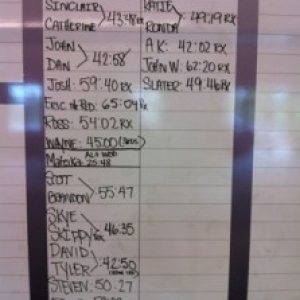 SINCLAIR
CATHERINE 43:48 Rx
JOHN
DAN 42:58
JOSH: 59:40 RX
ERIC 65:04 Rx
ROSS: 54:02 RX
WAYNE: 45:00
ALT WOD
25:48
SCOT
BRANDON 55:47
SKYE
SKIPPY 46:35
DAVID
TYLER 42:50
STEVEN: 50:27
KATIE
RONDA 49:19 RX
A.K: 42:02 RX
JOHN W: 62:20 RX
SLATER: 49:46 RX